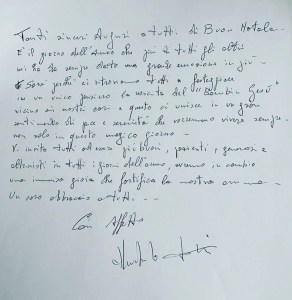 Tanti sinceri Auguri a tutti di Buon Natale.
È il giorno dell'Anno che più di tutti gli altri
mi ha da sempre dato una grande emozione in più.
Sarà perché ci ritroviamo tutti a festeggiare
in un unico pensiero la nascita del "Bambin Gesù"
vicini ai nostri cari e questo ci unisce in un gran
sentimento di pace e serenità che vorremmo vivere sempre
non solo in questo magico giorno.
Vi invito tutti ad essere più buoni, pazienti, generosi e
altruisti in tutti i giorni dell'anno, avremo in cambio
una immensa gioia che fortifica la nostra anima.
Un caro abbraccio a tutti.
Con affetto